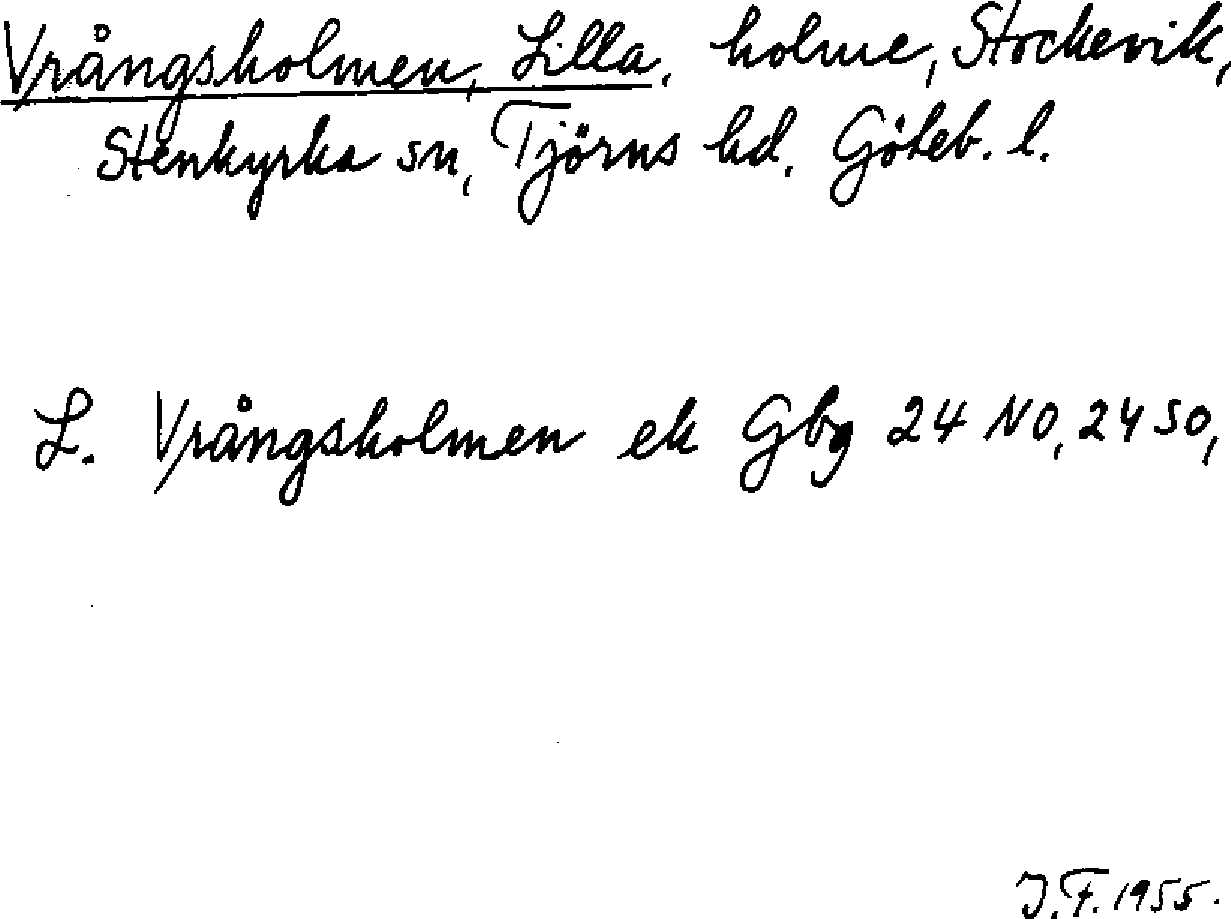 Vrångsholmen, Lilla, holme, Stockevik,
Stenkyrka sn, Tjörns hd. Göteb. l.
L. Vrångsholmen ek Gbg 24 NO, 24 SO,
J.F. 1955.